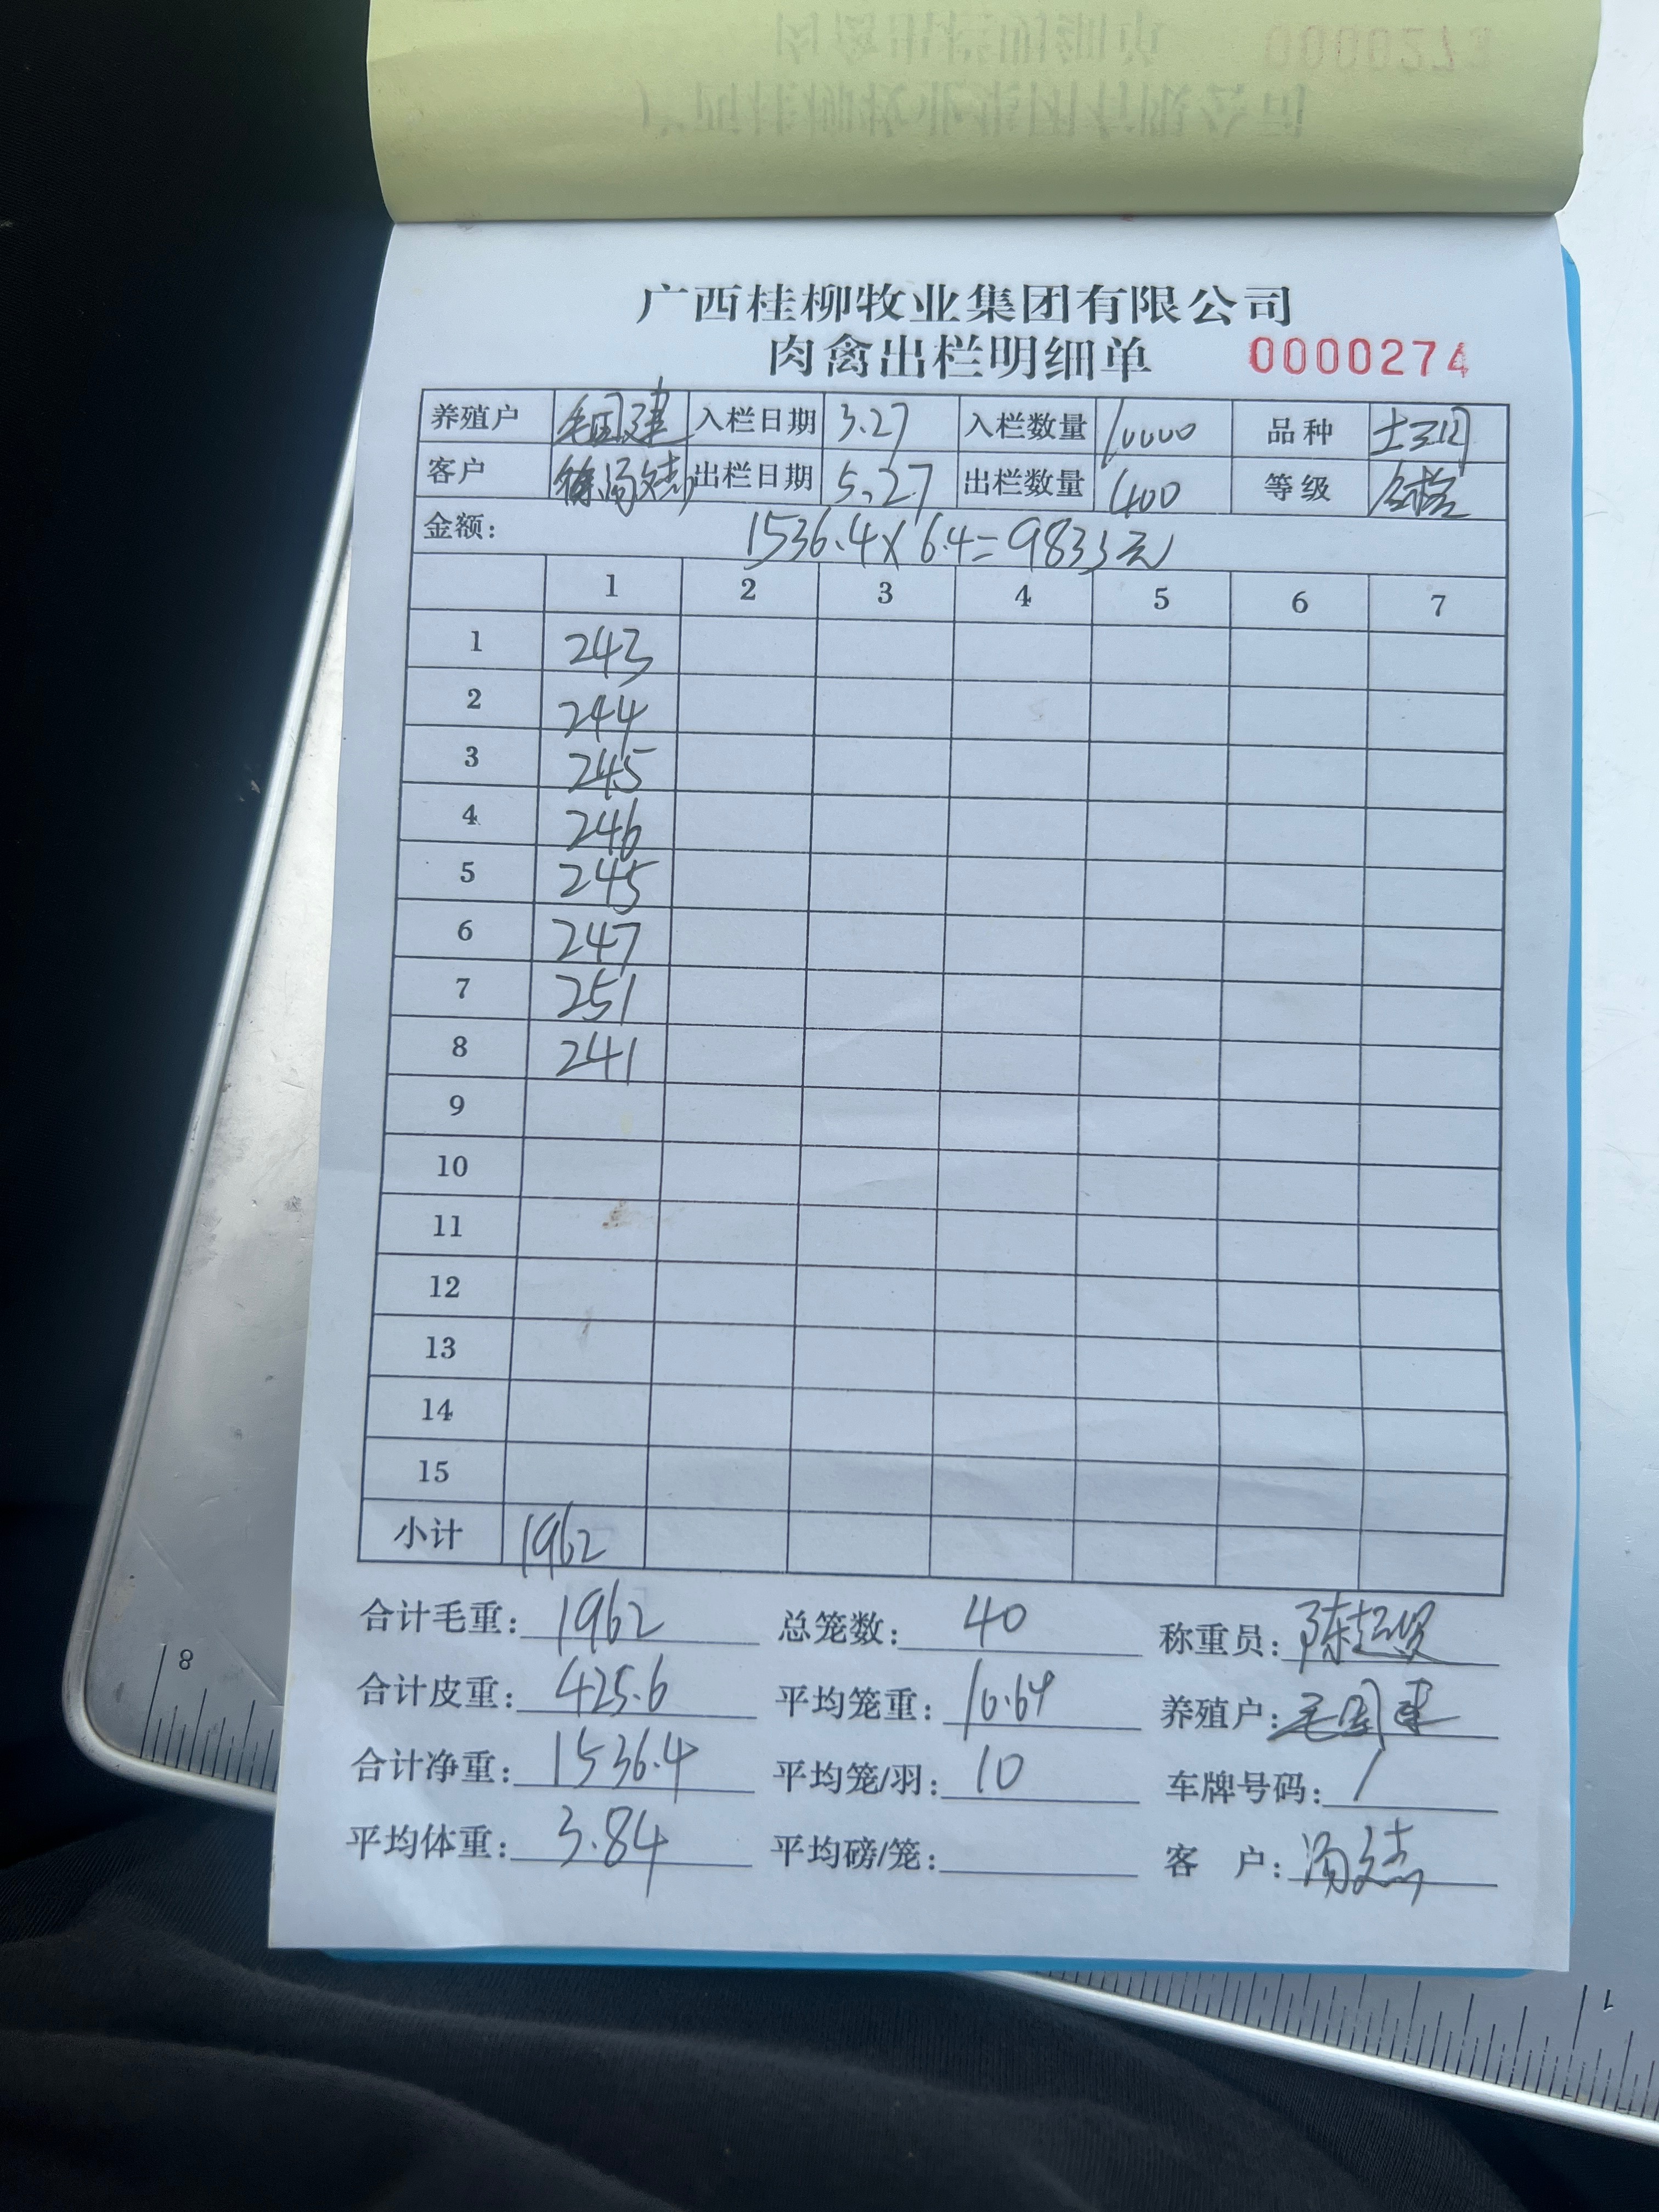 广西桂柳牧业集团有限公司
肉禽出栏明细单 0000274
养殖户 毛国建 入栏日期 3.27 入栏数量 10000 品种
客户 汤文杰 出栏日期 5.27 出栏数量 400 等级 合格
金额: 1536.4×6.4=9833元
1 2 3 4 5 6 7
1 243
2 244
3 245
4 246
5 245
6 247
7 251
8 241
9
10
11
12
13
14
15
小计 1962
合计毛重: 1962 总笼数: 40 称重员: 陈超
合计皮重: 425.6 平均笼重: 10.64 养殖户: 毛国建
合计净重: 1536.4 平均笼/羽: 10 车牌号码: /
平均体重: 3.84 平均磅/笼: 客 户: 汤文杰
8
1